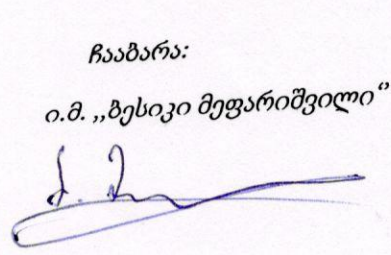 ჩააბარა:
ი.მ. ,,ბესიკი მეფარიშვილი“